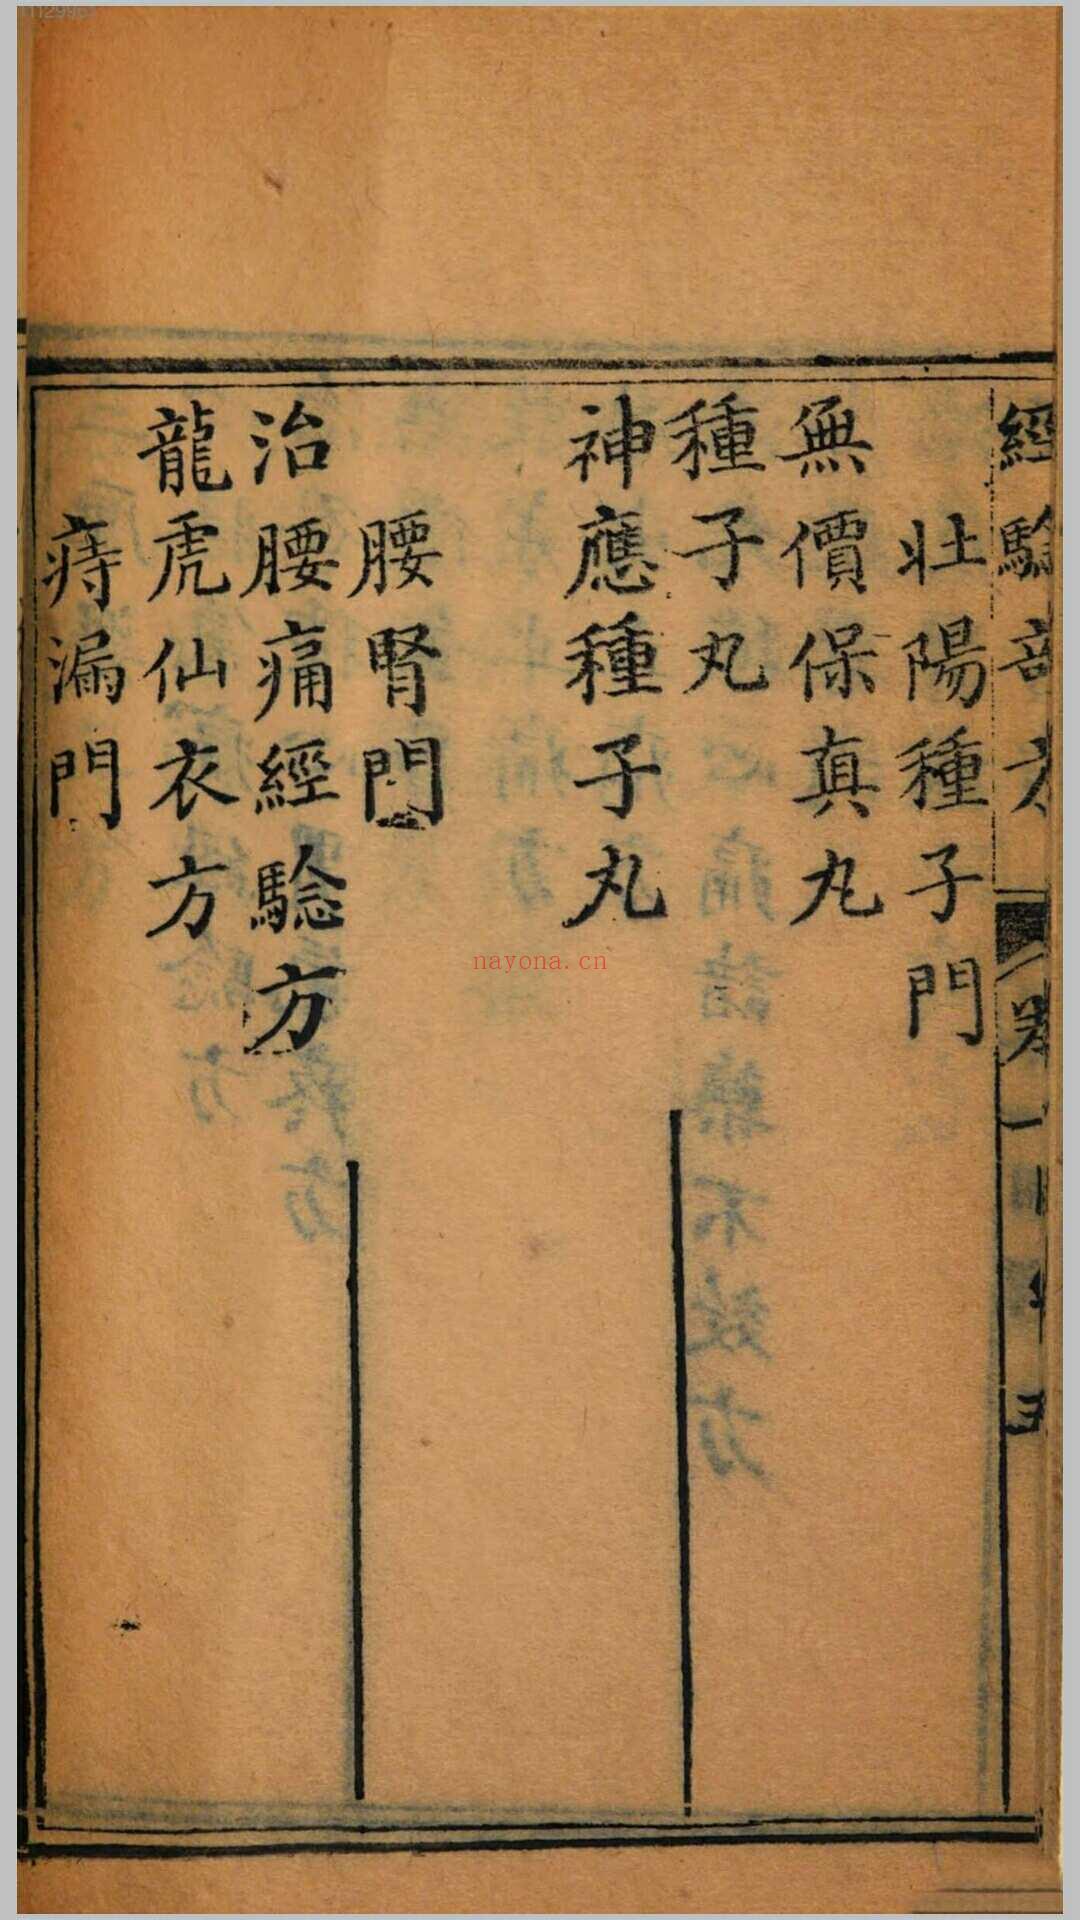 壯陽種子門
無價保真丸
種子丸
神應種子丸
腰腎門
治腰痛經騐方
龍虎仙衣方
痔漏門
nayona.cn